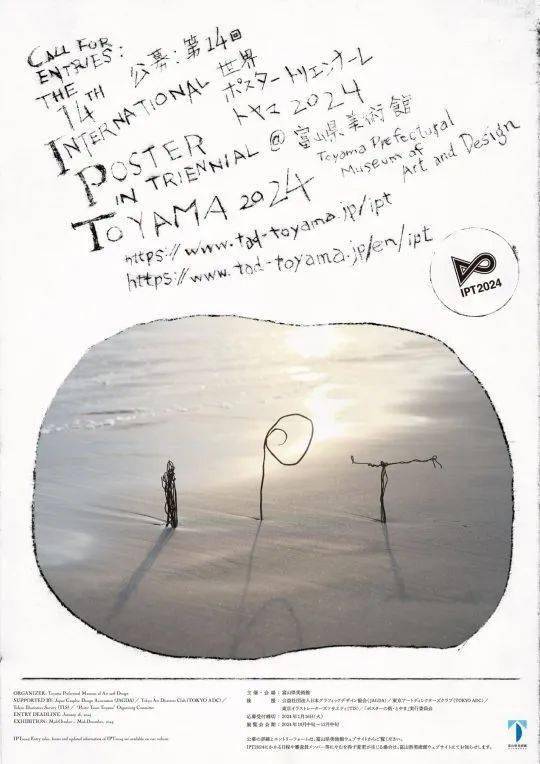 CALL FOR
ENTRIES:
THE
14TH
INTERNATIONAL
POSTER
IN TRIENNIAL
TOYAMA 2024
公募:第14回
世界
ポスタートリエンナーレ
トヤマ 2024
@ 富山県美術館
Toyama Prefectural
Museum of
Art and Design
https://www.tad-toyama.jp/ipt
https://www.tad-toyama.jp/en/ipt
IPT2024
I P T
ORGANIZER: Toyama Prefectural Museum of Art and Design
SUPPORTED BY: Japan Graphic Design Association (JAGDA) / Tokyo Art Directors Club (TOKYO ADC) /
Tokyo Illustrators Society (TIS) / "Poster Town Toyama" Organizing Committee
ENTRY DEADLINE: January 16, 2024
EXHIBITION: Mid-October – Mid-December, 2024
主催・会場:富山県美術館
後援:公益社団法人日本グラフィックデザイン協会(JAGDA)/東京アートディレクターズクラブ(TOKYO ADC)/
東京イラストレーターズ・ソサエティ(TIS)/「ポスターの街・とやま」実行委員会
応募受付締切:2024年1月16日(火)
展覧会会期:2024年10月中旬〜12月中旬
公募の詳細とエントリーフォームは、富山県美術館ウェブサイトからご覧ください。
富山県美術館